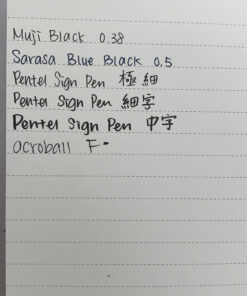 Muji Black 0.38
Sarasa Blue Black 0.5
Pentel Sign Pen 極細
Pentel Sign Pen 細字
Pentel Sign Pen 中字
acroball F